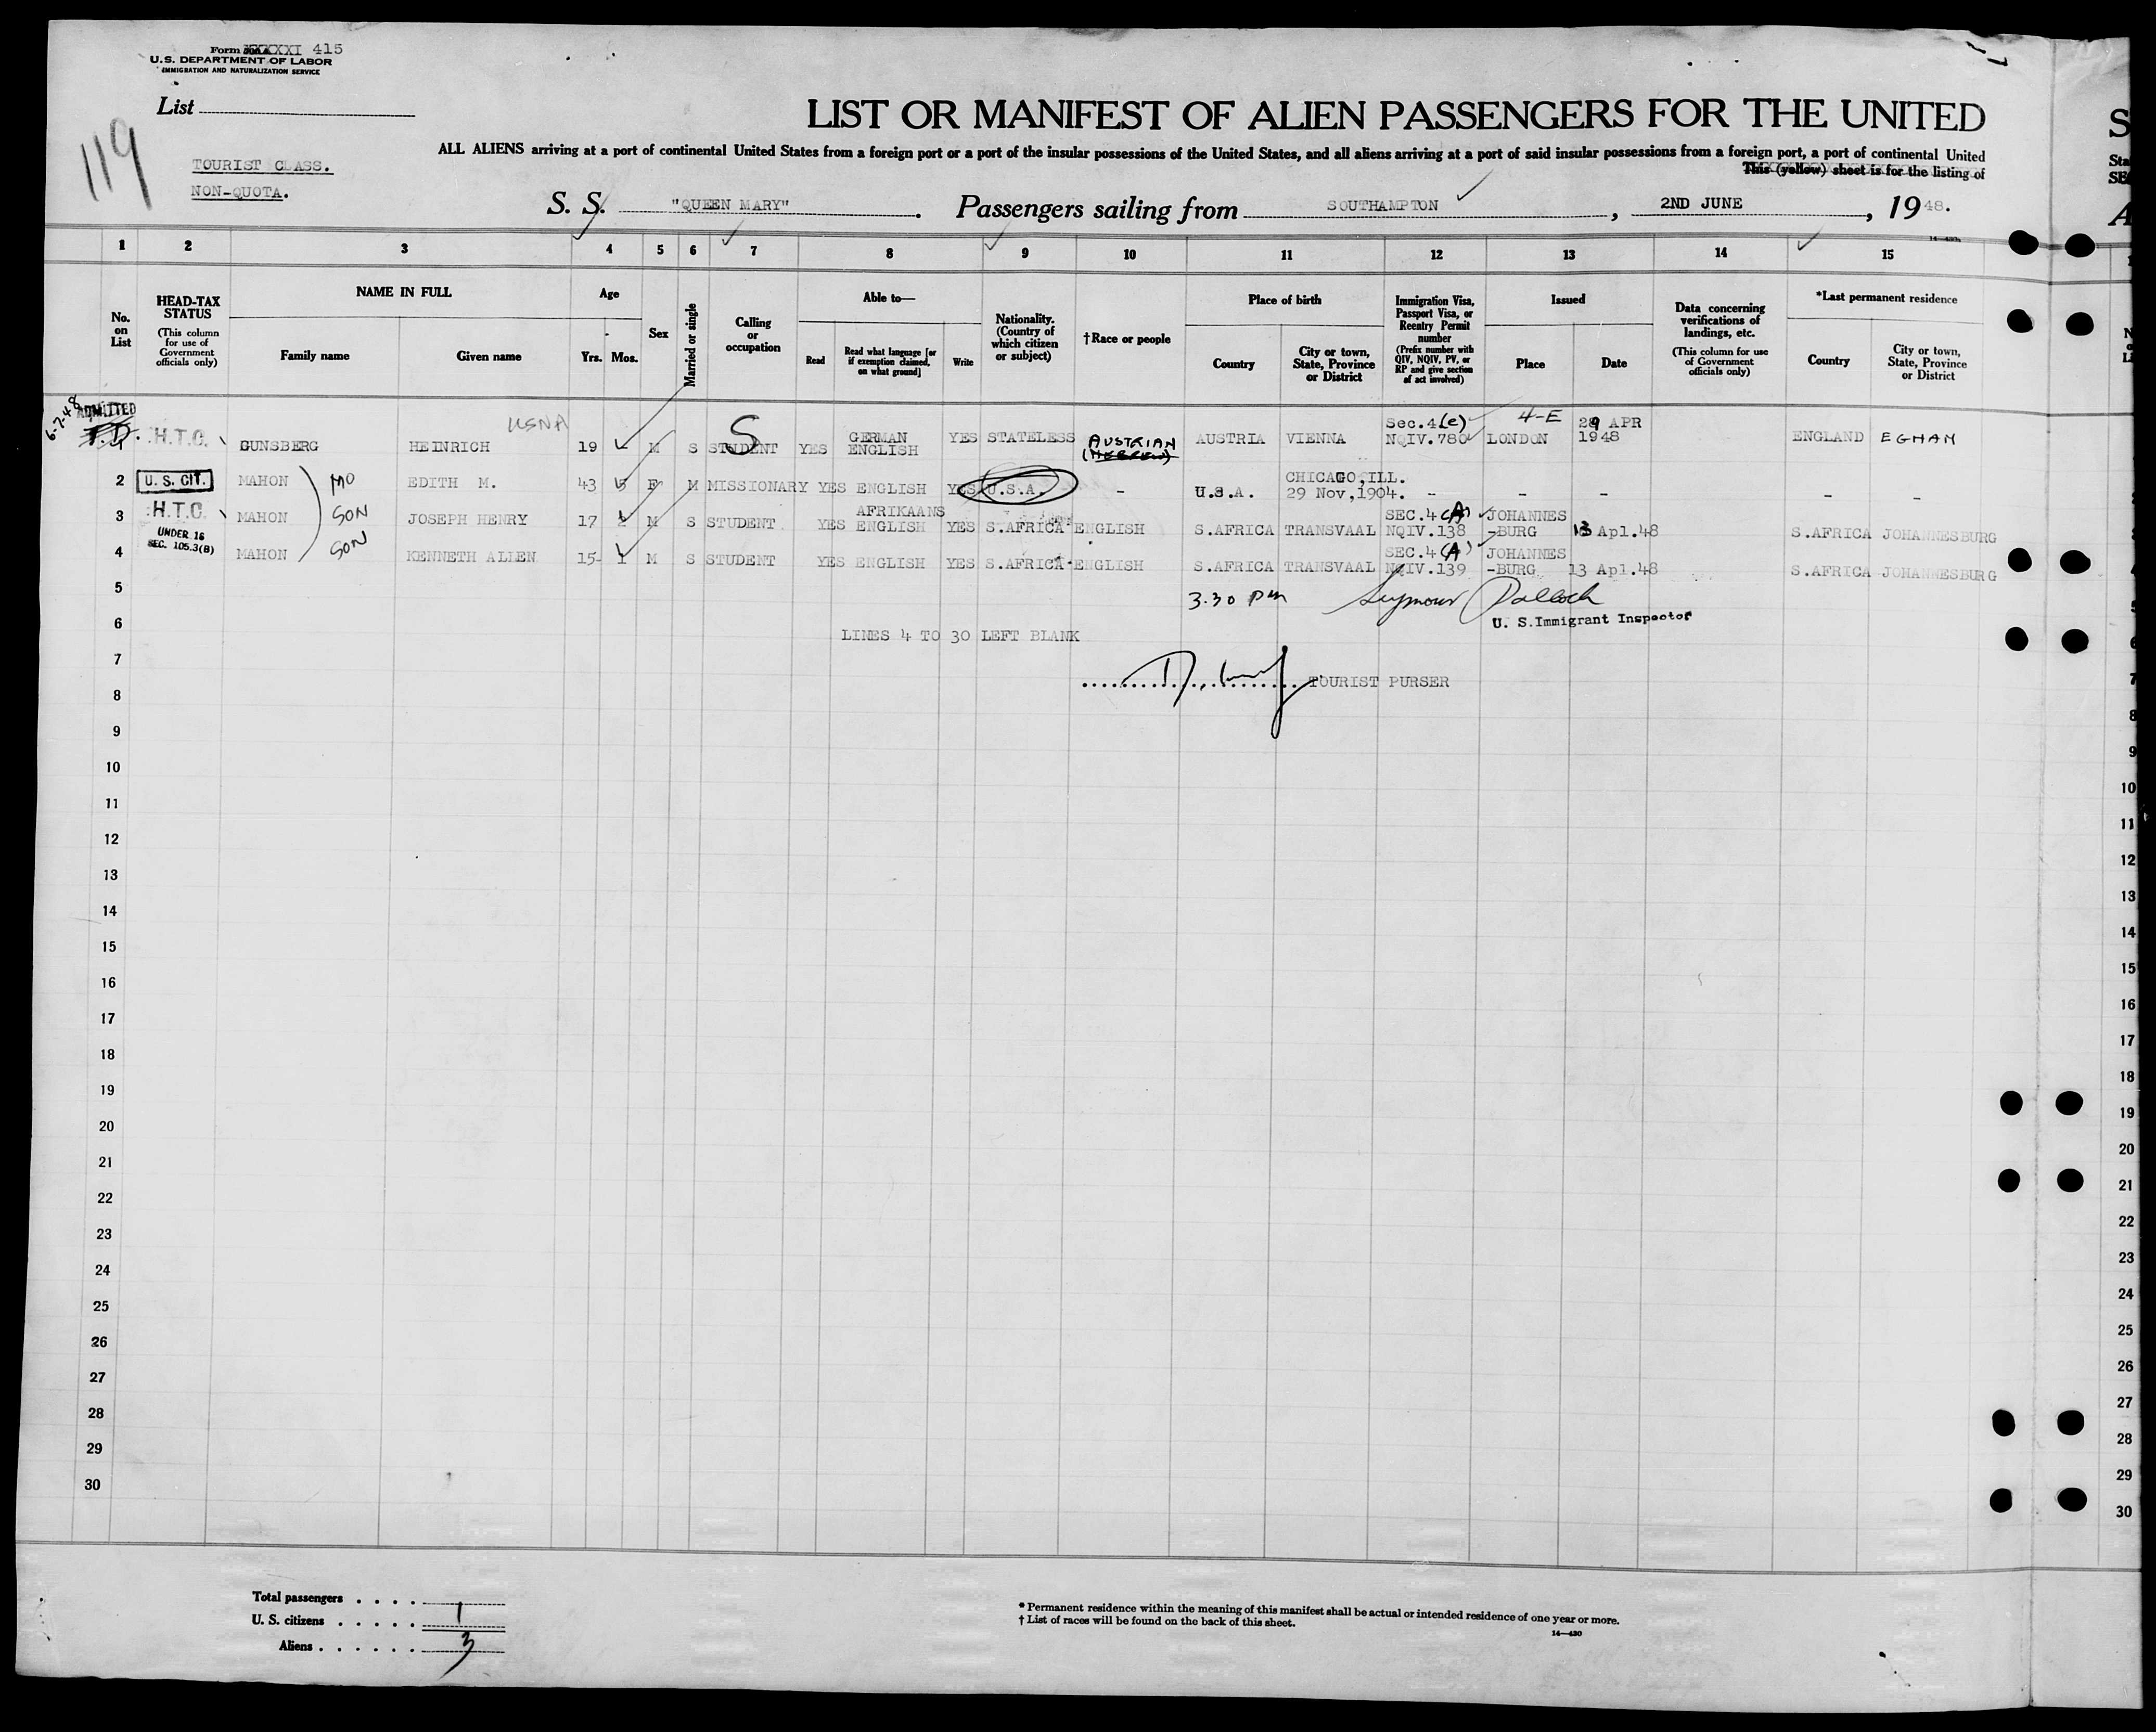 Form XXXXXI 415
U.S. DEPARTMENT OF LABOR
IMMIGRATION AND NATURALIZATION SERVICE
List
119
TOURIST CLASS.
NON-QUOTA.
LIST OR MANIFEST OF ALIEN PASSENGERS FOR THE UNITED
ALL ALIENS arriving at a port of continental United States from a foreign port or a port of the insular possessions of the United States, and all aliens arriving at a port of said insular possessions from a foreign port, a port of continental United
This (yellow) sheet is for the listing of
S. S. "QUEEN MARY". Passengers sailing from SOUTHAMPTON, 2ND JUNE, 1948.
1 2 3 4 5 6 7 8 9 10 11 12 13 14 15
No. on List
HEAD-TAX STATUS
(This column for use of Government officials only)
NAME IN FULL
Family name Given name
Age
Yrs. Mos.
Sex
Married or single
Calling or occupation
Able to—
Read
Read what language [or if exemption claimed, on what ground]
Write
Nationality. (Country of which citizen or subject)
†Race or people
Place of birth
Country
City or town, State, Province or District
Immigration Visa, Passport Visa, or Reentry Permit number
(Prefix number with QIV, NQIV, PV, or RP and give section of act involved)
Issued
Place Date
Data concerning verifications of landings, etc.
(This column for use of Government officials only)
*Last permanent residence
Country
City or town, State, Province or District
6-7-48 ADMITTED
H.T.C. GUNSBERG HEINRICH USNA 19 M S STUDENT S YES GERMAN ENGLISH YES STATELESS AUSTRIAN (HEBREW) AUSTRIA VIENNA Sec.4(e) NQIV.780 4-E LONDON 29 APR 1948 ENGLAND EGHAM
2 U. S. CIT. MAHON MO EDITH M. 43 5 F M MISSIONARY YES ENGLISH YES U.S.A. - U.S.A. CHICAGO, ILL. 29 Nov, 1904. - - - - -
3 H.T.C. MAHON SON JOSEPH HENRY 17 M S STUDENT YES AFRIKAANS ENGLISH YES S.AFRICA ENGLISH S.AFRICA TRANSVAAL SEC.4(A) NQIV.138 JOHANNES-BURG 13 Apl.48 S.AFRICA JOHANNESBURG
4 UNDER 16 SEC. 105.3(B) MAHON SON KENNETH ALLEN 15 1 M S STUDENT YES ENGLISH YES S.AFRICA ENGLISH S.AFRICA TRANSVAAL SEC.4(A) NQIV.139 JOHANNES-BURG 13 Apl.48 S.AFRICA JOHANNESBURG
5
3.30 pm Seymour
U. S. Immigrant Inspector
6
LINES 4 TO 30 LEFT BLANK
7
TOURIST PURSER
8
9
10
11
12
13
14
15
16
17
18
19
20
21
22
23
24
25
26
27
28
29
30
Total passengers
U. S. citizens 1
Aliens 3
* Permanent residence within the meaning of this manifest shall be actual or intended residence of one year or more.
† List of races will be found on the back of this sheet.
14—430